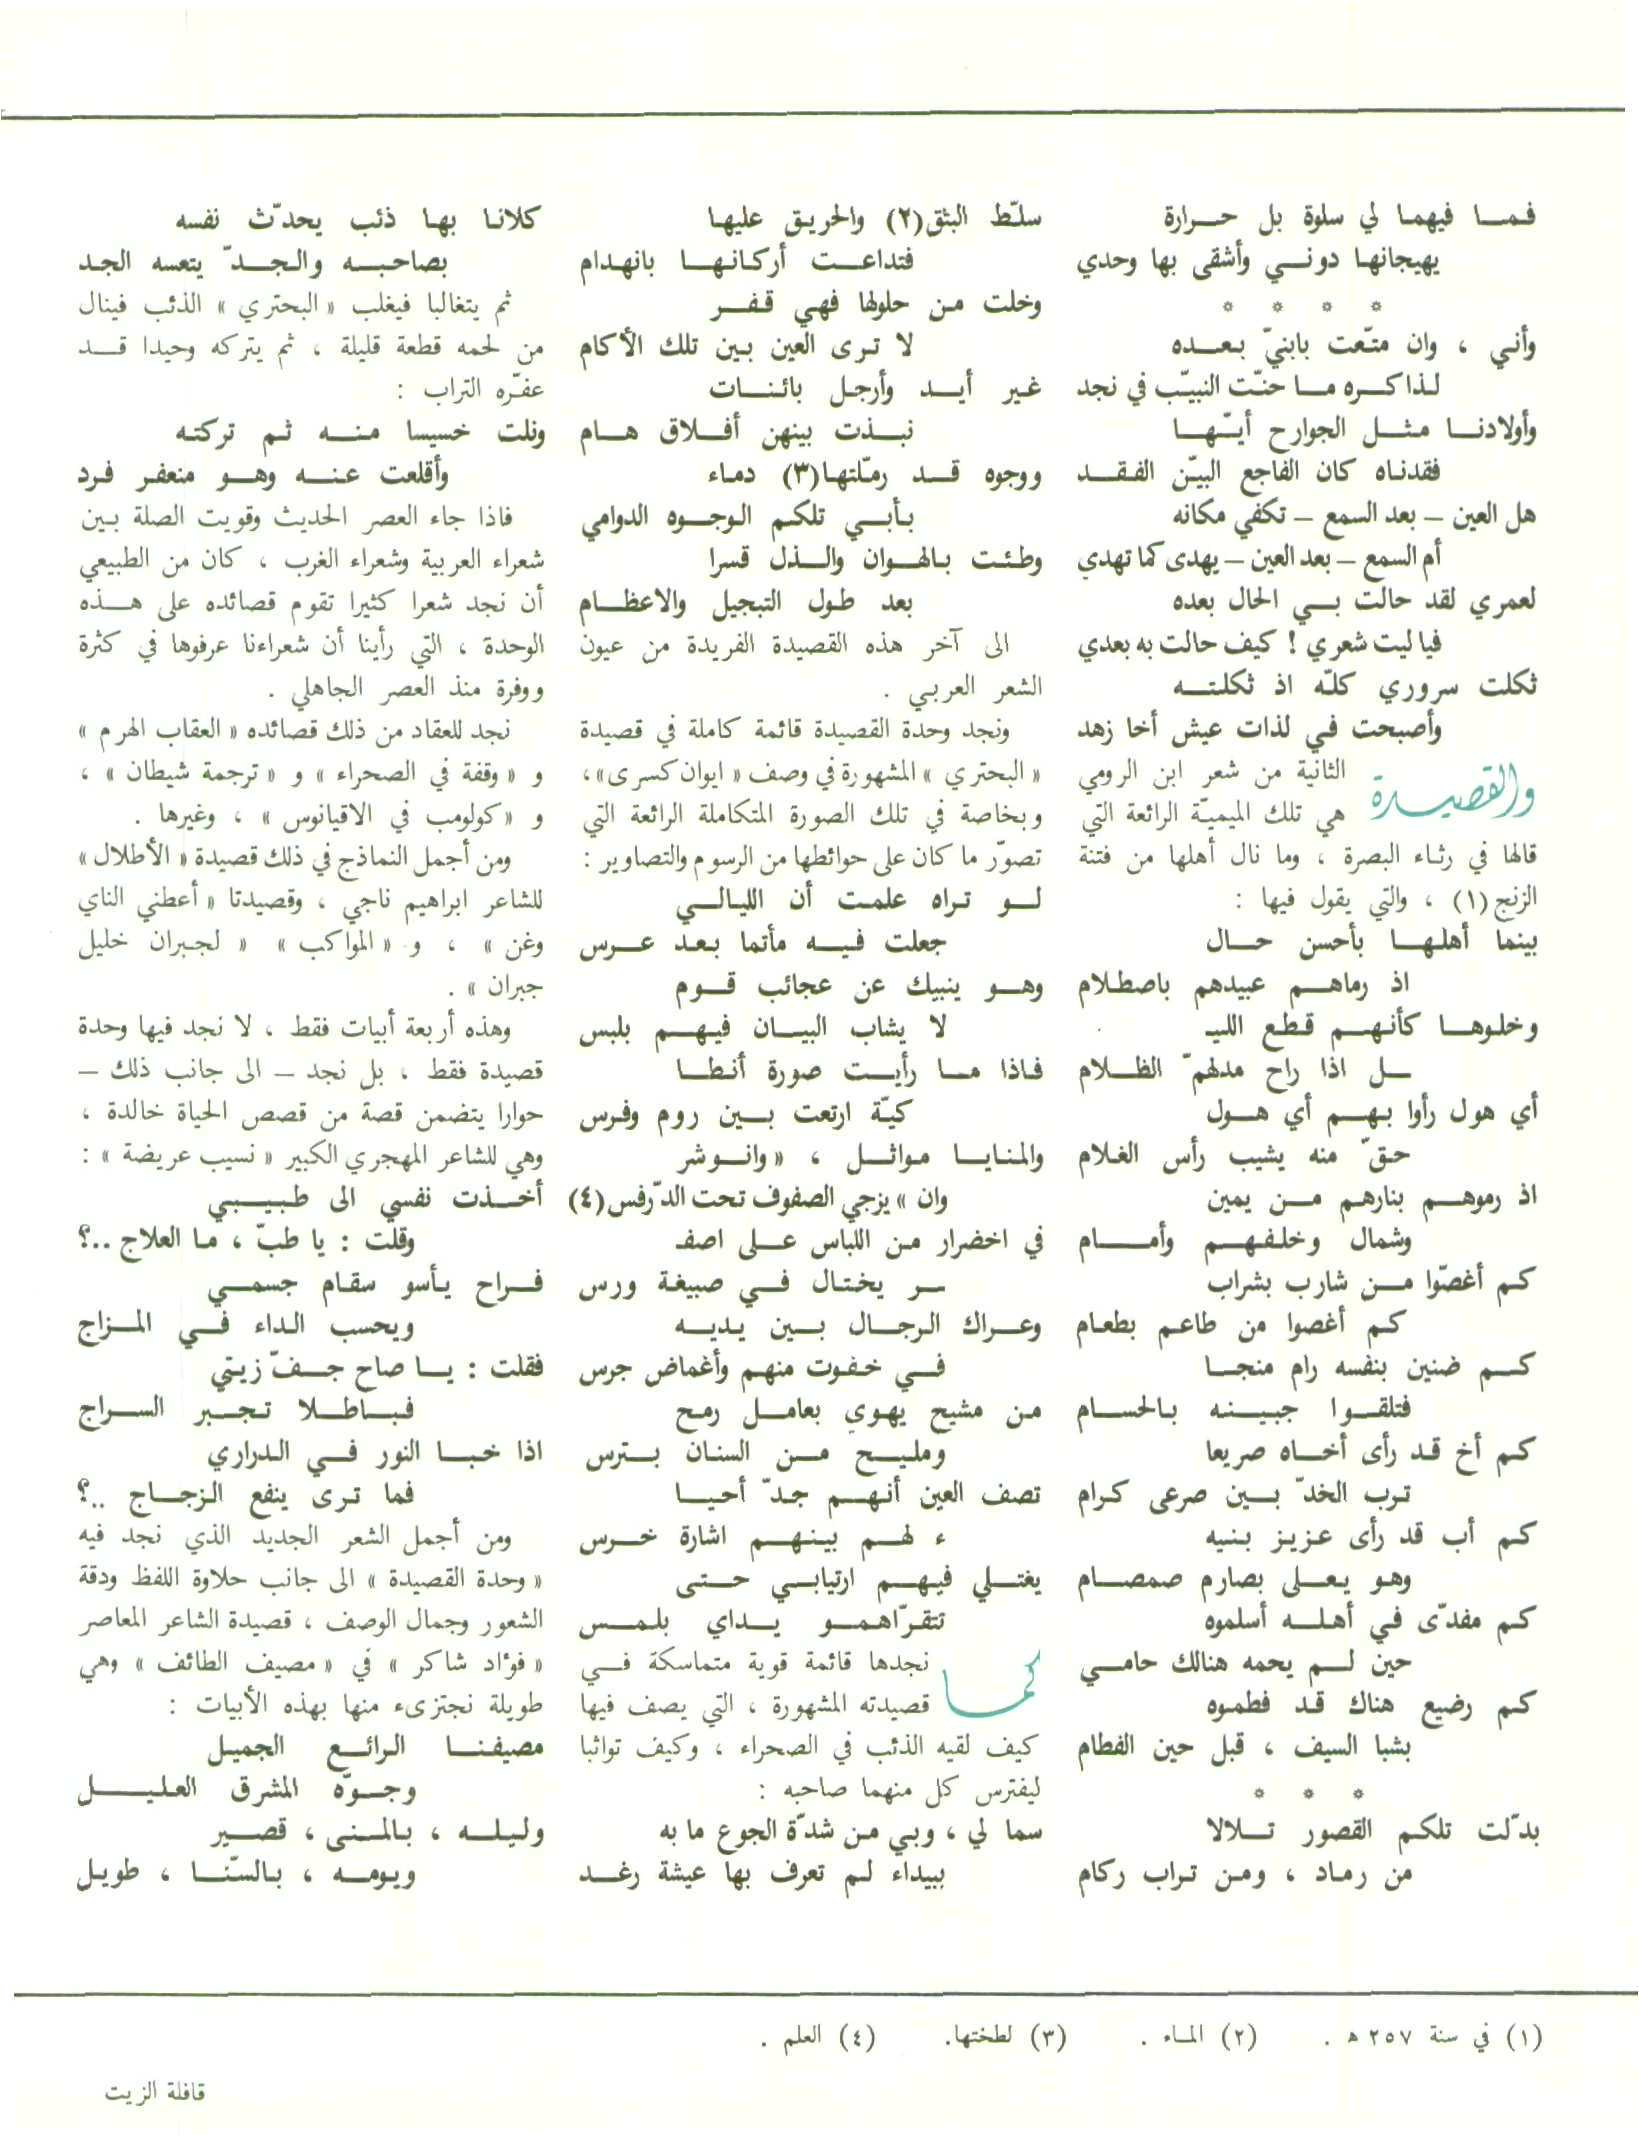 فمــا فيهما لي سلوة بل حــرارة
يهيجانها دونــي وأشقى بها وحدي
* * * *
وأني ، وان متّعت بابنيّ بعــده
لذاكــره مــا حنّت النيّب في نجد
وأولادنــا مثــل الجوارح أيّــهــا
فقدناه كان الفاجع البيّن الفقــد
هل العين – بعد السمع – تكفي مكانه
أم السمع – بعد العين – يهدى كما تهدي
لعمري لقد حالت بــي الحال بعده
فيا ليت شعري ! كيف حالت به بعدي
ثكلت سروري كلّه اذ ثكلتــه
وأصبحت في لذات عيش أخا زهد
والقصيدة الثانية من شعر ابن الرومي
هي تلك الميميّة الرائعة التي
قالها في رثاء البصرة ، وما نال أهلها من فتنة
الزنج(١) ، والتي يقول فيها :
بينما أهلهــا بأحسن حــال
اذ رماهــم عبيدهم باصطــلام
وخلوهــا كأنهــم قطع الليـ
ــل اذا راح مدلهمّ الظــلام
أي هول رأوا بهــم أي هــول
حقّ منه يشيب رأس الغلام
اذ رموهــم بنارهم مــن يمين
وشمال وخلفهــم وأمــام
كم أغصّوا مــن شارب بشراب
كــم أغصوا من طاعم بطعام
كــم ضنين بنفسه رام منجــا
فتلقــوا جبينــه بالحسام
كــم أخ قد رأى أخــاه صريعا
ترب الخدّ بــين صرعى كرام
كــم أب قد رأى عزيز بنيه
وهو يعــلى بصارم صمصــام
كــم مفدّى في أهلــه أسلموه
حين لــم يحمه هنالك حامــي
كــم رضيع هناك قد فطموه
بشبا السيف ، قبل حين الفطام
* * *
بدّلت تلكــم القصور تــلالا
من رماد ، ومن تراب ركام
سلّط البثق(٢) والحريق عليها
فتداعــت أركانهــا بانهدام
وخلت من حلولها فهي قفــر
لا ترى العين بين تلك الأكام
غير أيــد وأرجل بائنــات
نبــذت بينهن أفــلاق هــام
ووجوه قــد رمّلتها(٣) دماء
بأبــي تلكم الوجــوه الدوامي
وطئت بالهــوان والــذل قسرا
بعد طول التبجيل والاعظــام
الى آخر هذه القصيدة الفريدة من عيون
الشعر العربي .
ونجد وحدة القصيدة قائمة كاملة في قصيدة
« البحتري » المشهورة في وصف « ايوان كسرى » ،
وبخاصة في تلك الصورة المتكاملة الرائعة التي
تصوّر ما كان على حوائطها من الرسوم والتصاوير :
لــو تراه علمت أن الليالــي
جعلت فيــه مأتما بعد عــرس
وهــو ينبيك عن عجائب قــوم
لا يشاب البيــان فيهــم بلبس
فاذا مــا رأيــت صورة أنطــا
كيّة ارتعت بــين روم وفرس
والمنايــا مواثــل ، « وانــوشر
وان » يزجي الصفوف تحت الدّرفس(٤)
في اخضرار من اللباس عــلى اصفـ
ــر يختال فــي صبيغة ورس
وعــراك الرجــال بــين يديــه
فــي خفوت منهم وأغماض جرس
من مشيح يهوي بعامــل رمح
ومليــح مــن السنان بــترس
تصف العين أنهــم جدّ أحيــا
ء لهــم بينهــم اشارة خــرس
يغتــلي فيهــم ارتيابــي حــتى
تتقرّاهمــو يــداي بلمــس
كما نجدها قائمة قوية متماسكة فــي
قصيدته المشهورة ، التي يصف فيها
كيف لقيه الذئب في الصحراء ، وكيف تواثبا
ليفترس كل منهما صاحبه :
سما لي ، وبي من شدّة الجوع ما به
ببيداء لم تعرف بها عيشة رغــد
كلانا بها ذئب يحدّث نفسه
بصاحبــه والجــدّ يتعسه الجد
ثم يتغالبا فيغلب « البحتري » الذئب فينال
من لحمه قطعة قليلة ، ثم يتركه وحيدا قــد
عفّره التراب :
ونلت خسيسا منــه ثم تركته
وأقلعت عنــه وهــو منعفر فرد
فاذا جاء العصر الحديث وقويت الصلة بين
شعراء العربية وشعراء الغرب ، كان من الطبيعي
أن نجد شعرا كثيرا تقوم قصائده على هــذه
الوحدة ، التي رأينا أن شعراءنا عرفوها في كثرة
ووفرة منذ العصر الجاهلي .
نجد للعقاد من ذلك قصائده « العقاب الهرم »
و « وقفة في الصحراء » و « ترجمة شيطان » ،
و « كولومب في الاقيانوس » ، وغيرها .
ومن أجمل النماذج في ذلك قصيدة « الأطلال »
للشاعر ابراهيم ناجي ، وقصيدتا « أعطني الناي
وغن » ، و « المواكب » « لجبران خليل
جبران » .
وهذه أربعة أبيات فقط ، لا نجد فيها وحدة
قصيدة فقط ، بل نجد – الى جانب ذلك –
حوارا يتضمن قصة من قصص الحياة خالدة ،
وهي للشاعر المهجري الكبير « نسيب عريضة » :
أخــذت نفسي الى طبيــبي
وقلت : يا طبّ ، ما العلاج ..؟
فــراح يأسو سقام جسمــي
ويحسب الداء فــي المــزاج
فقلت : يــا صاح جــفّ زيتي
فبــاطــلا تجــبر الســراج
اذا خبــا النور فــي الدراري
فما ترى ينفع الزجــاج ..؟
ومن أجمل الشعر الجديد الذي نجد فيه
« وحدة القصيدة » الى جانب حلاوة اللفظ ودقة
الشعور وجمال الوصف ، قصيدة الشاعر المعاصر
« فوءاد شاكر » في « مصيف الطائف » وهي
طويلة نجتزىء منها بهذه الأبيات :
مصيفنــا الرائــع الجميل
وجــوّه المشرق العليــل
وليلــه ، بالمــنى ، قصــير
ويومــه ، بالسّنــا ، طويل
(١) في سنة ٢٥٧ ه . (٢) الماء . (٣) لطختها. (٤) العلم .
قافلة الزيت